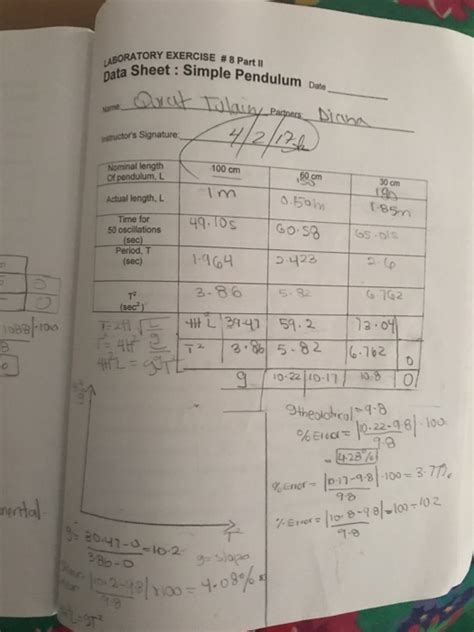 LABORATORY EXERCISE # 8 Part II
Data Sheet : Simple Pendulum Date
Name: Qurat Tulain Partners: Diana
Instructor's Signature: 4/2/17
Nominal length Of pendulum, L 100 cm 60 cm 30 cm
150
Actual length, L 1m 1.85m
Time for 50 oscillations (sec) 49.10s 60.58 65.01s
Period, T (sec) 1.964 2.423 2.6
T² (sec²) 3.86 5.82 6.762
4π²L 39.47 59.2 73.04
T² 3.86 5.82 6.762 0
g 10.22 10.17 10.8 0
g theoretical = 9.8
% Error = |10.22-9.8| / 9.8 · 100
= 4.28%
% Error = |10.17-9.8| / 9.8 · 100 = 3.77%
% Error = |10.8-9.8| / 9.8 · 100 = 10.2
T²
g = 39.47-0 / 3.86-0 = 10.2 g = slope
|10.2-9.8| / 9.8 x100 = 4.08%